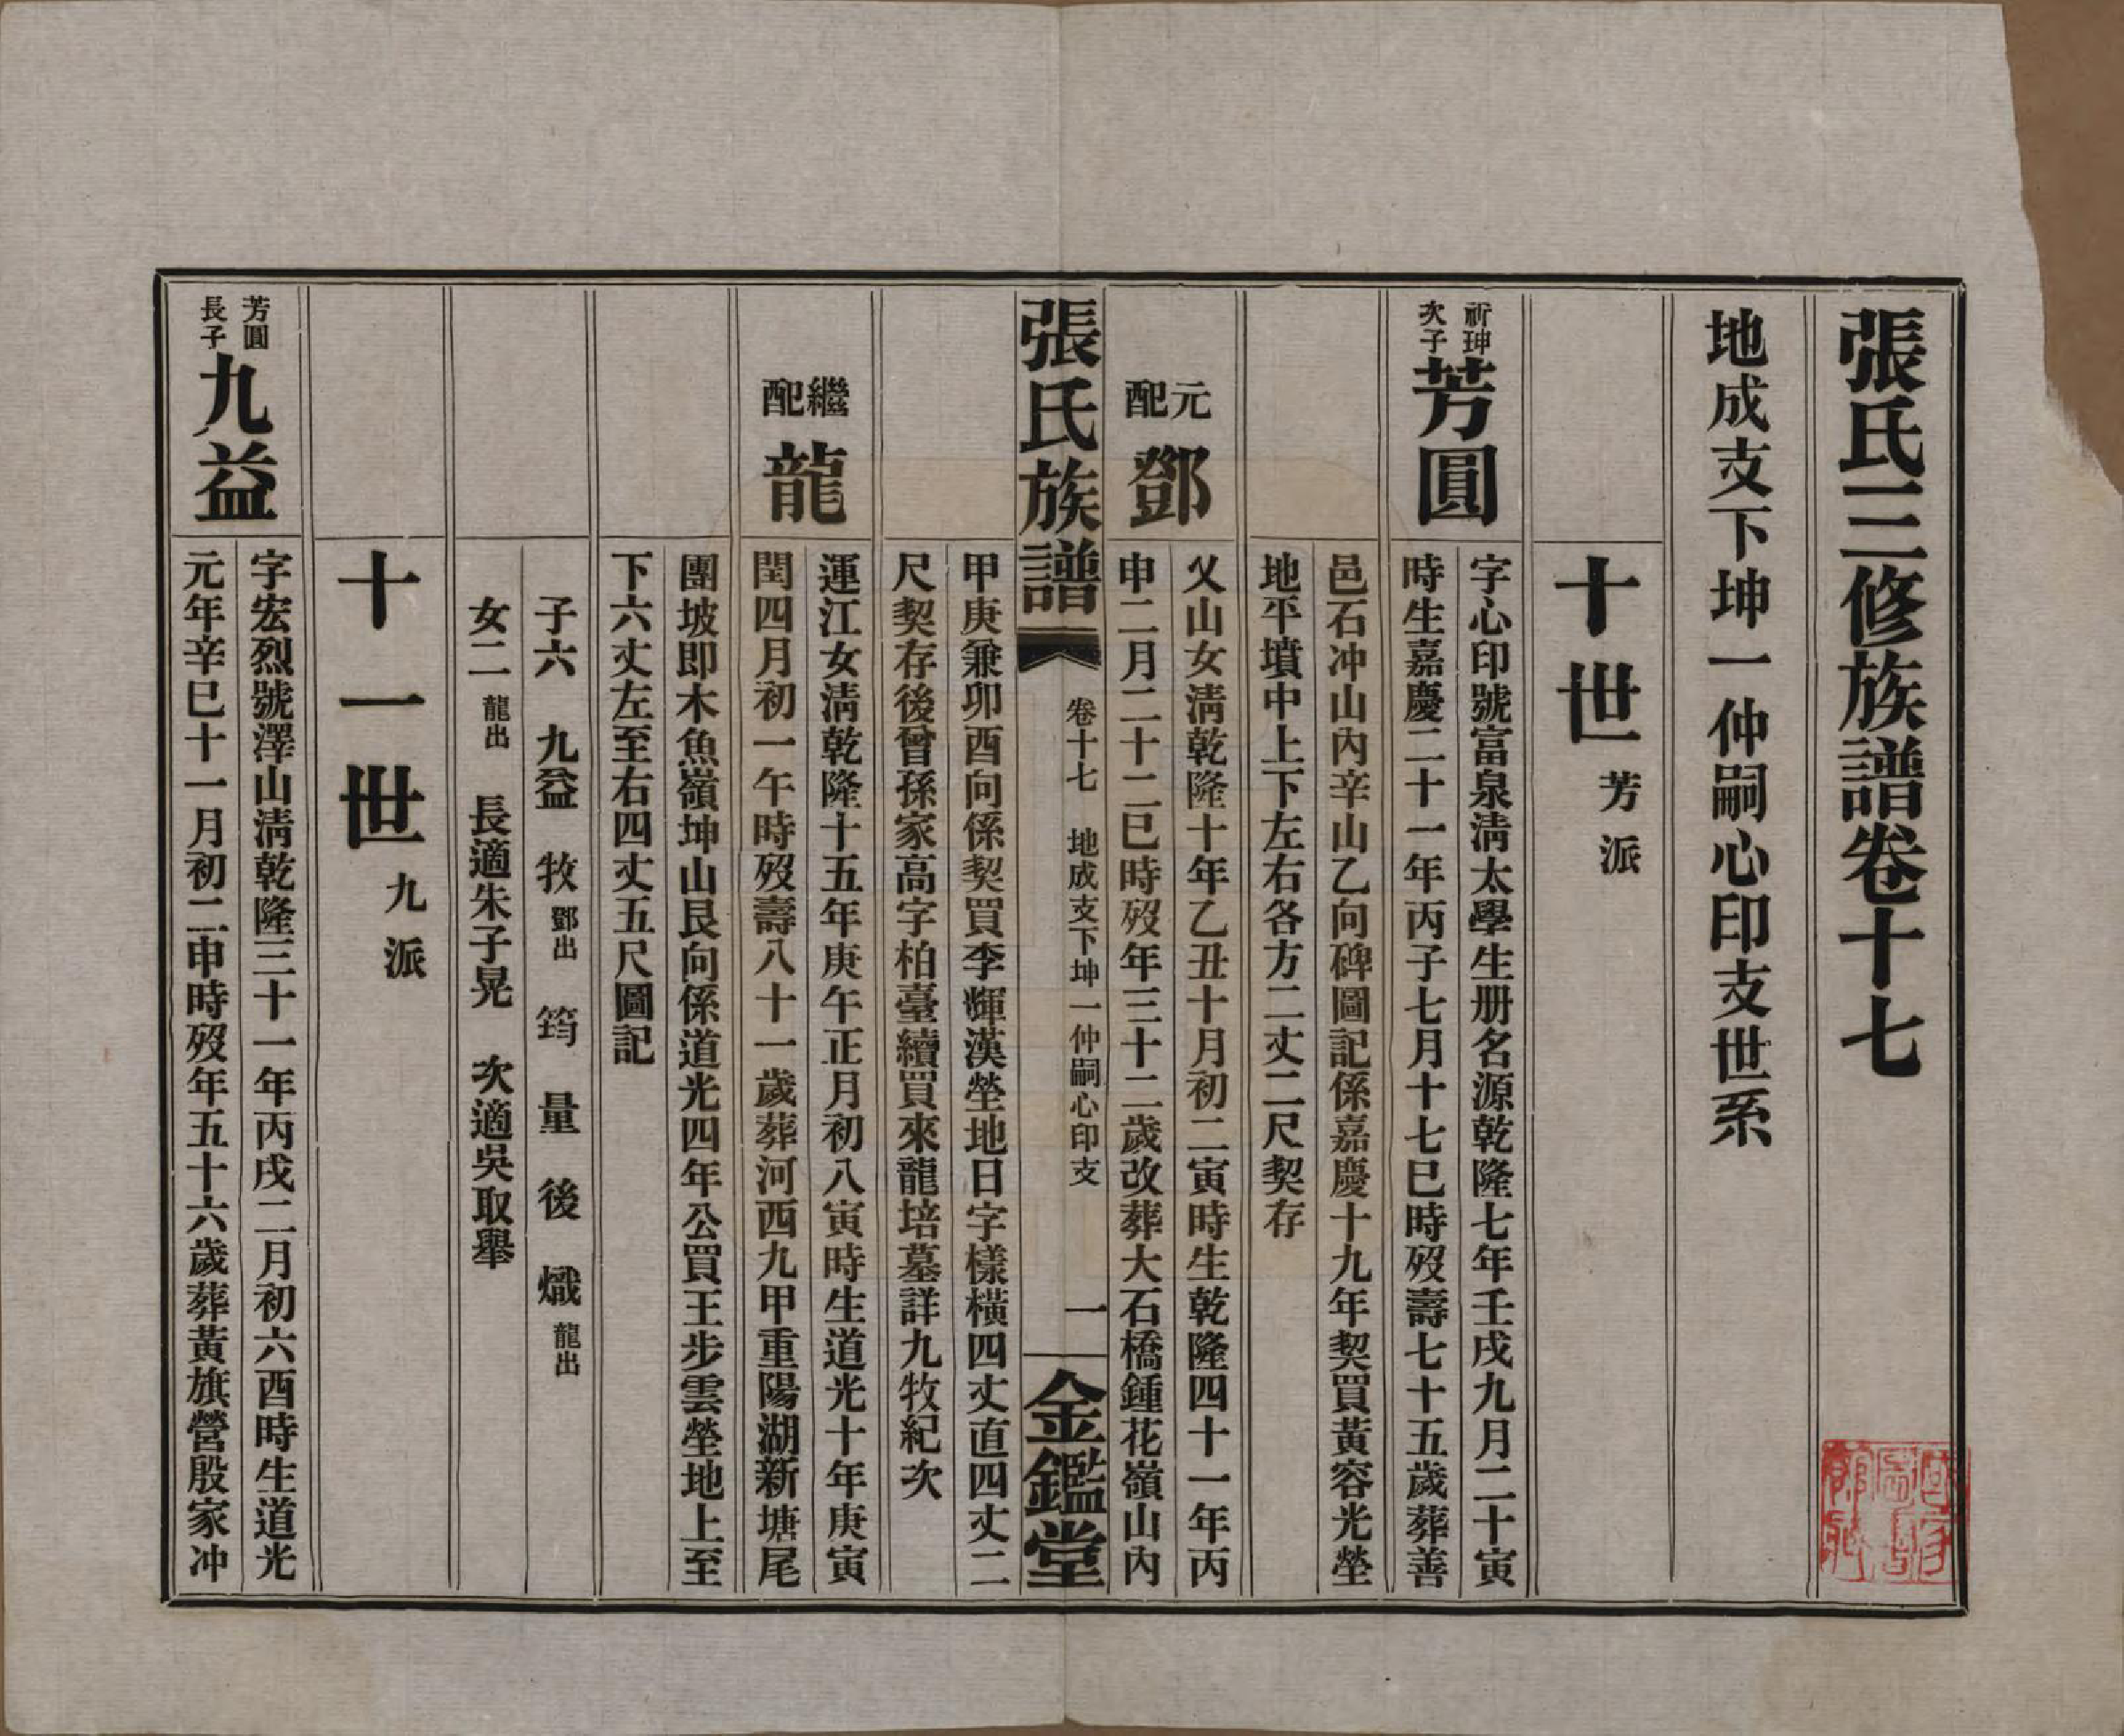 張氏三修族譜卷十七
地成支下坤一仲嗣心印支世系
十世 芳派
祈珅
次子
芳圓
字心印號富泉淸太學生册名源乾隆七年壬戌九月二十寅
時生嘉慶二十一年丙子七月十七巳時歿壽七十五歲葬善
邑石冲山內辛山乙向碑圖記係嘉慶十九年契買黃容光塋
地平墳中上下左右各方二丈二尺契存
元配 鄧
父山女淸乾隆十年乙丑十月初二寅時生乾隆四十一年丙
申二月二十二巳時歿年三十二歲改葬大石橋鍾花嶺山內
張氏族譜
卷十七 地成支下坤一仲嗣心印支
一
金鑑堂
甲庚兼卯酉向係契買李輝漢塋地日字樣橫四丈直四丈二
尺契存後曾孫家高字柏臺續買來龍培墓詳九牧紀次
繼配 龍
運江女淸乾隆十五年庚午正月初八寅時生道光十年庚寅
閏四月初一午時歿壽八十一歲葬河西九甲重陽湖新塘尾
團坡即木魚嶺坤山艮向係道光四年公買王步雲塋地上至
下六丈左至右四丈五尺圖記
子六 九益 牧 鄧出 筠 量 後 熾 龍出
女二 龍出 長適朱子晃 次適吳取舉
十一世 九派
芳圓
長子
九益
字宏烈號澤山淸乾隆三十一年丙戌二月初六酉時生道光
元年辛巳十一月初二申時歿年五十六歲葬黃旗營殷家冲